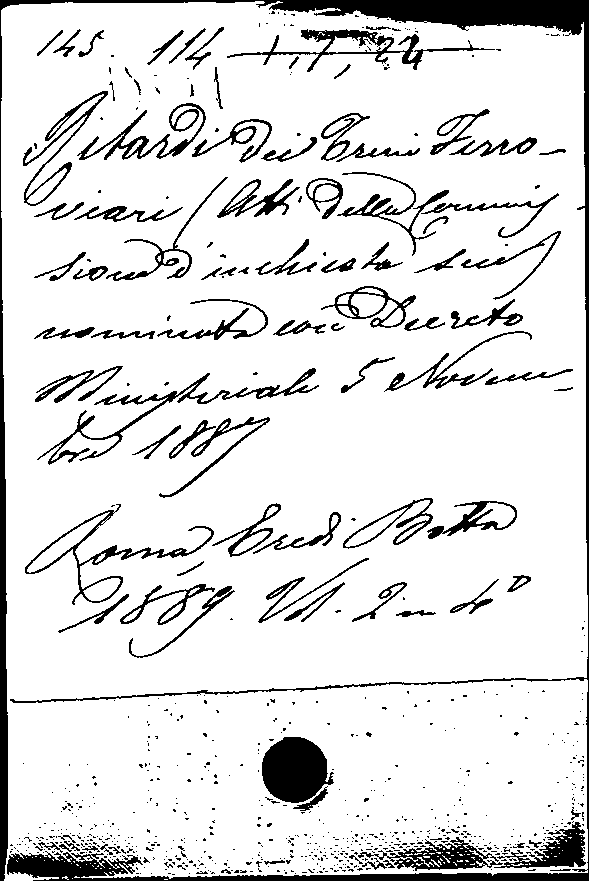 145. 114 1, 7, 24
Ritardi dei Treni Ferro-
viari (Atti della Commis-
sione d'inchiesta sui
nominata con Decreto
Ministeriale 5 Novem-
bre 1887
Roma, Eredi Botta
1889. Vol. 2 in 4°